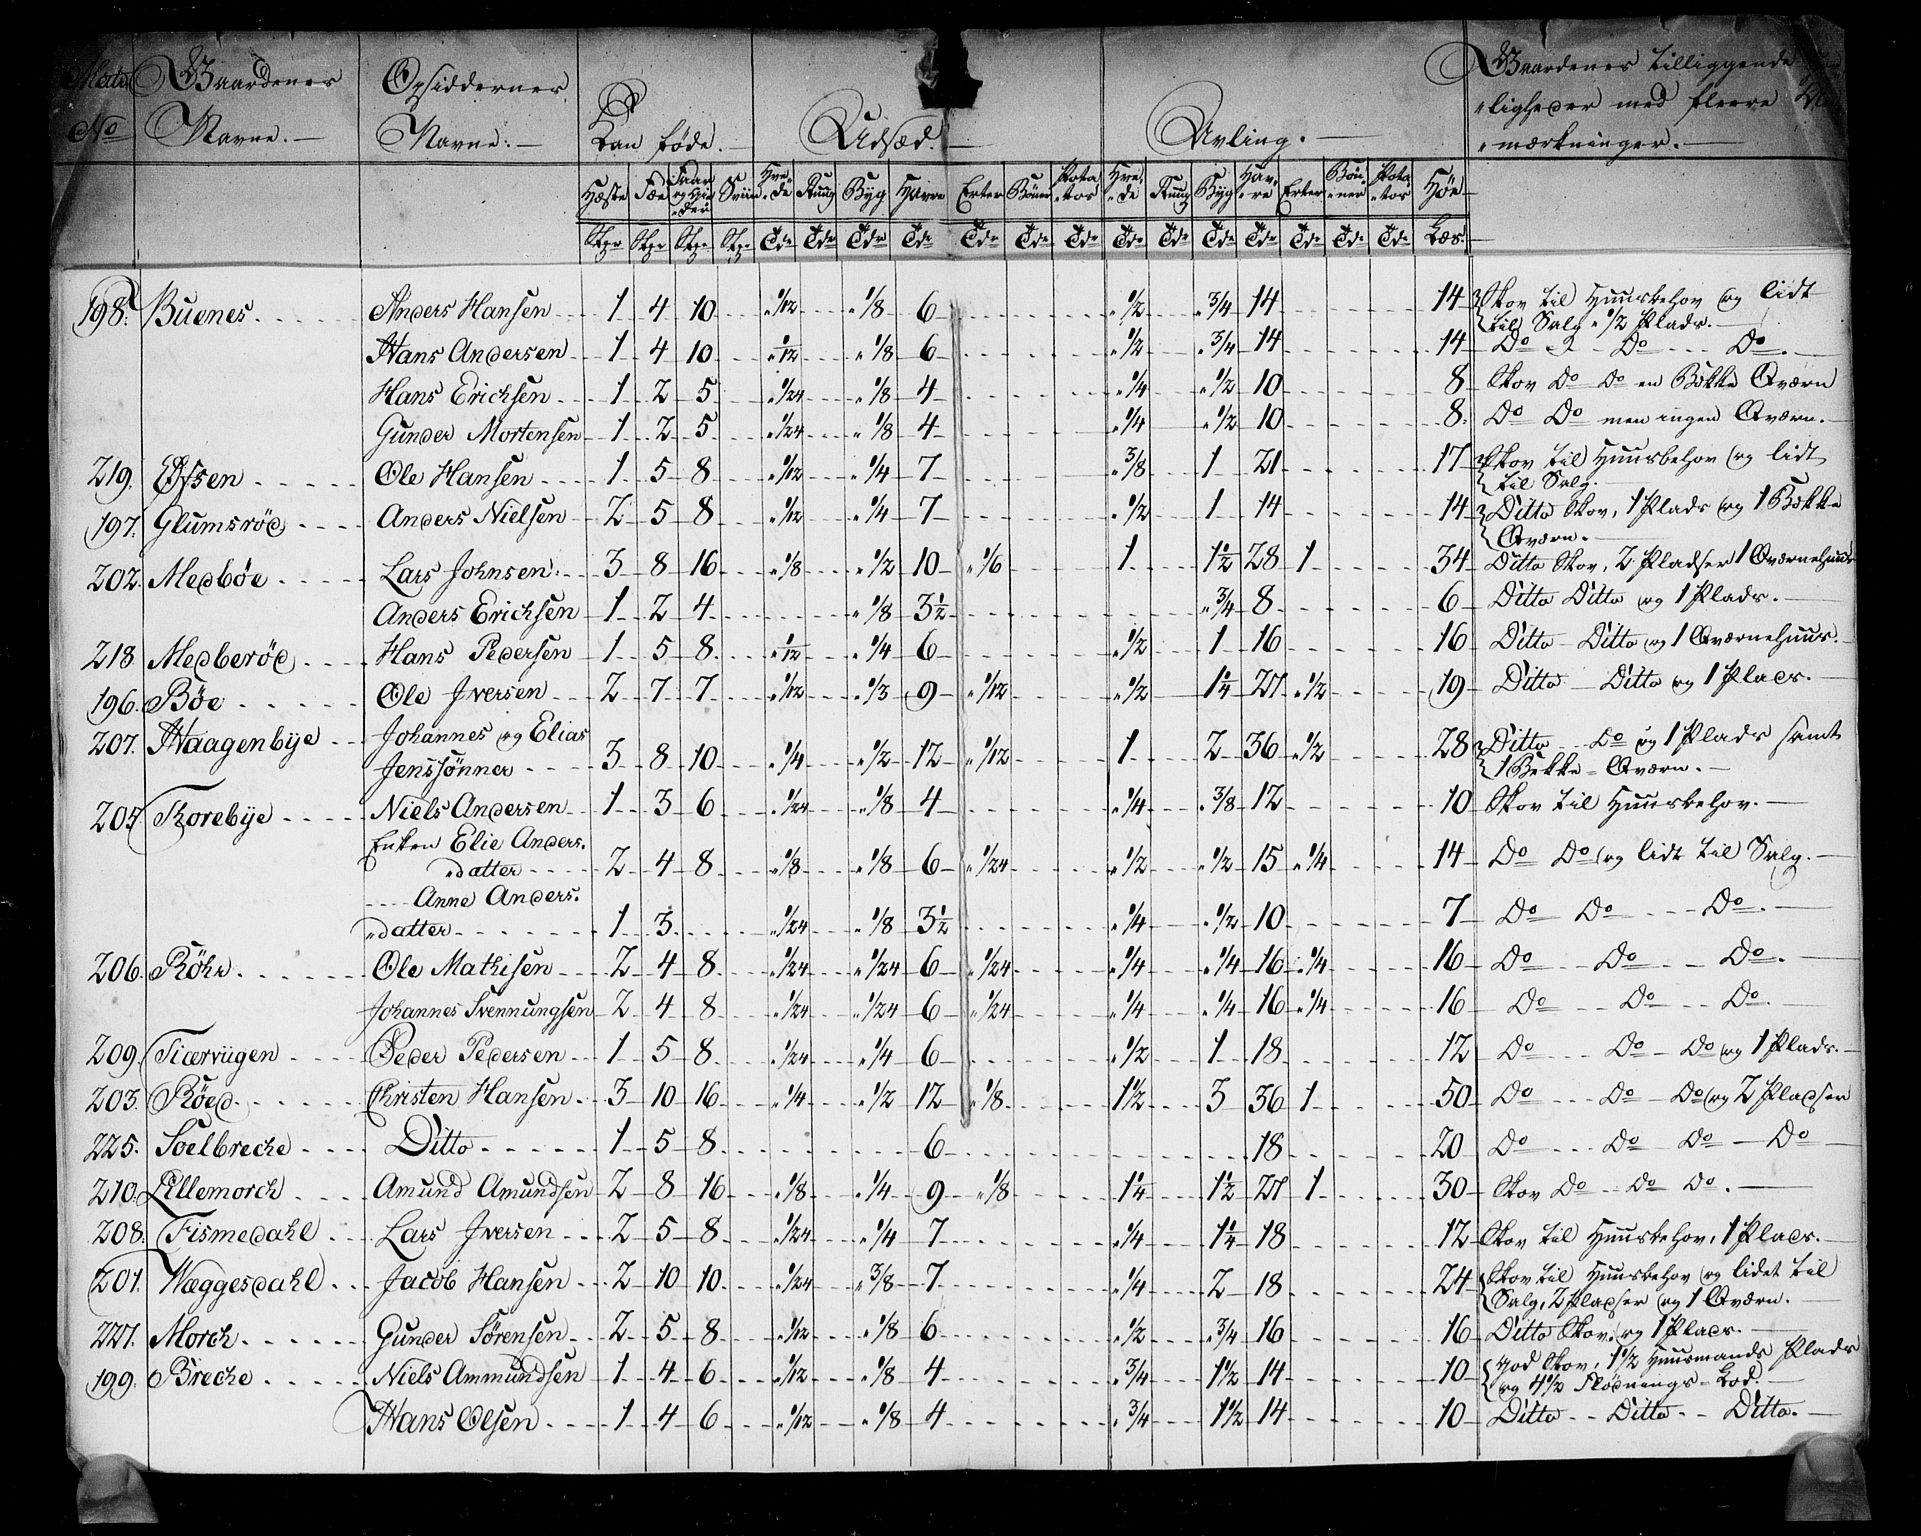 Matr Gaardenes Opsiddernes Gaardenes tilliggende
No Navne. Navne. Kan föde. Udsæd. Avling. ligheder med fleere
mærkninger.
Hæste Fæe Faar og Gie-der Sviin Hve-de Ruug Byg Havre Erter Bönner Pota-tos Hve-de Ruug Byg Hav-re Erter Bön-ner Pota-tos Höe
Stkr Stkr Stkr Stkr Tdr Tdr Tdr Tdr Tdr Tdr Tdr Tdr Tdr Tdr Tdr Tdr Tdr Tdr Læs.
198. Buenes Anders Hansen 1 4 10 " 1/12 " 1/8 6 " 1/2 " 3/4 14 14 Skov til Huusbehov og lidt
til Salg " 1/2 Plads.
Hans Andersen 1 4 10 " 1/12 " 1/8 6 " 1/2 " 3/4 14 14 Do Do Do.
Hans Erichsen 1 2 5 " 1/24 " 1/8 4 " 1/4 " 1/2 10 8 Skov Do Do en Bekke Qværn
Gunder Mortensen 1 2 5 " 1/24 " 1/8 4 " 1/4 " 1/2 10 8. Do Do men ingen Qværn.
219. Ofsen Ole Hansen 1 5 8 " 1/12 " 1/4 7 " 3/8 1 21 17 Skov til Huusbehov og lidt
til Salg.
197. Glumsröd Anders Nielsen 2 5 8 " 1/12 " 1/4 7 " 1/2 1 14 14 Ditto Skov, 1 Plads og 1 Bekke
Qværn.
202. Medböe Lars Johnsen 3 8 16 " 1/8 " 1/2 10 " 1/6 1 1 1/2 28 1 34 Ditto Skov, 2 Pladser 1 Qværnehuus
Anders Erichsen 1 2 4 " 1/8 3 1/2 " 3/4 8 6 Ditto Ditto og 1 Plads.
218 Medberöd Hans Pedersen 1 5 8. " 1/12 " 1/4 6 " 1/2 1 16 16 Ditto Ditto og 1 Qværnehuus.
196. Böe Ole Iversen 2 7 7 " 1/12 " 1/3 9 " 1/12 " 1/2 1 1/4 27 " 1/2 19 Ditto Ditto og 1 Plads.
207. Haagenbye Johannes og Elias
Jenssönner 3 8 10 " 1/4 " 1/2 12 " 1/12 1 2 36 " 1/2 28 Ditto Do og 1 Plads samt
1 Bekke-Qværn.
205 Torebye Niels Andersen 1 3 6 " 1/24 " 1/8 4 " 1/4 " 3/8 12 10 Skov til Huusbehov.
Enken Elie Anders.
"datter 2 4 8 " 1/8 " 1/8 6 " 1/24 " 1/2 " 1/2 15 " 1/4 14 Do Do og lidt til Salg.
Anne Anders.
"datter 1 3 " 1/24 " 1/8 3 1/2 " 1/4 " 1/2 10 7 Do Do Do.
206. Röhr Ole Mathisen 2 4 8 " 1/24 " 1/24 6 " 1/24 " 1/4 " 1/4 16 " 1/4 16 Do Do Do.
Johannes Svennungsen 2 4 8 " 1/24 " 1/24 6 " 1/24 " 1/4 " 1/4 16 " 1/4 16 Do Do Do.
209. Ticervigen Peder Pedersen 1 5 8 " 1/24 " 1/4 6 " 1/2 1 18 12 Do Do Do og 1 Plads.
203. Röed Christen Hansen 3 10 16 " 1/4 " 1/2 12 " 1/8 1 1/2 3 36 1 50 Do Do Do og 2 Pladser
225. Soelbrecke Ditto 1 5 8 6 18 20 Do Do Do Do
210. Lillemorck Amund Amundsen 2 8 16 " 1/8 " 1/4 9 " 1/8 1 1/4 1 1/2 27 1 30 Skov Do Do Do.
208. Fismedahl Lars Iversen 2 5 8 " 1/24 " 1/4 7 " 1/4 1 1/4 18 12 Skov til Huusbehov, 1 Plads.
201. Wæggesdahl Jacob Hansen 2 10 10 " 1/24 " 3/8 7 " 1/4 2 18 24 Skov til Huusbehov og lidet til
Salg, 2 Pladser og 1 Qværn.
227. Morck Gunder Sörensen 2 5 8 " 1/12 " 1/8 6 " 1/2 " 3/4 16 16 Ditto Skov, og 1 Plads.
199. Brecke Niels Ammundsen 1 4 6 " 1/12 " 1/8 4 " 3/4 1 1/2 14 10 god Skov, 1 1/2 Huusmands Plads
og 4 1/2 Flödnings-Lod.
Hans Olsen 1 4 6 " 1/12 " 1/8 4 " 3/4 1 1/2 14 10 Ditto Ditto Ditto.